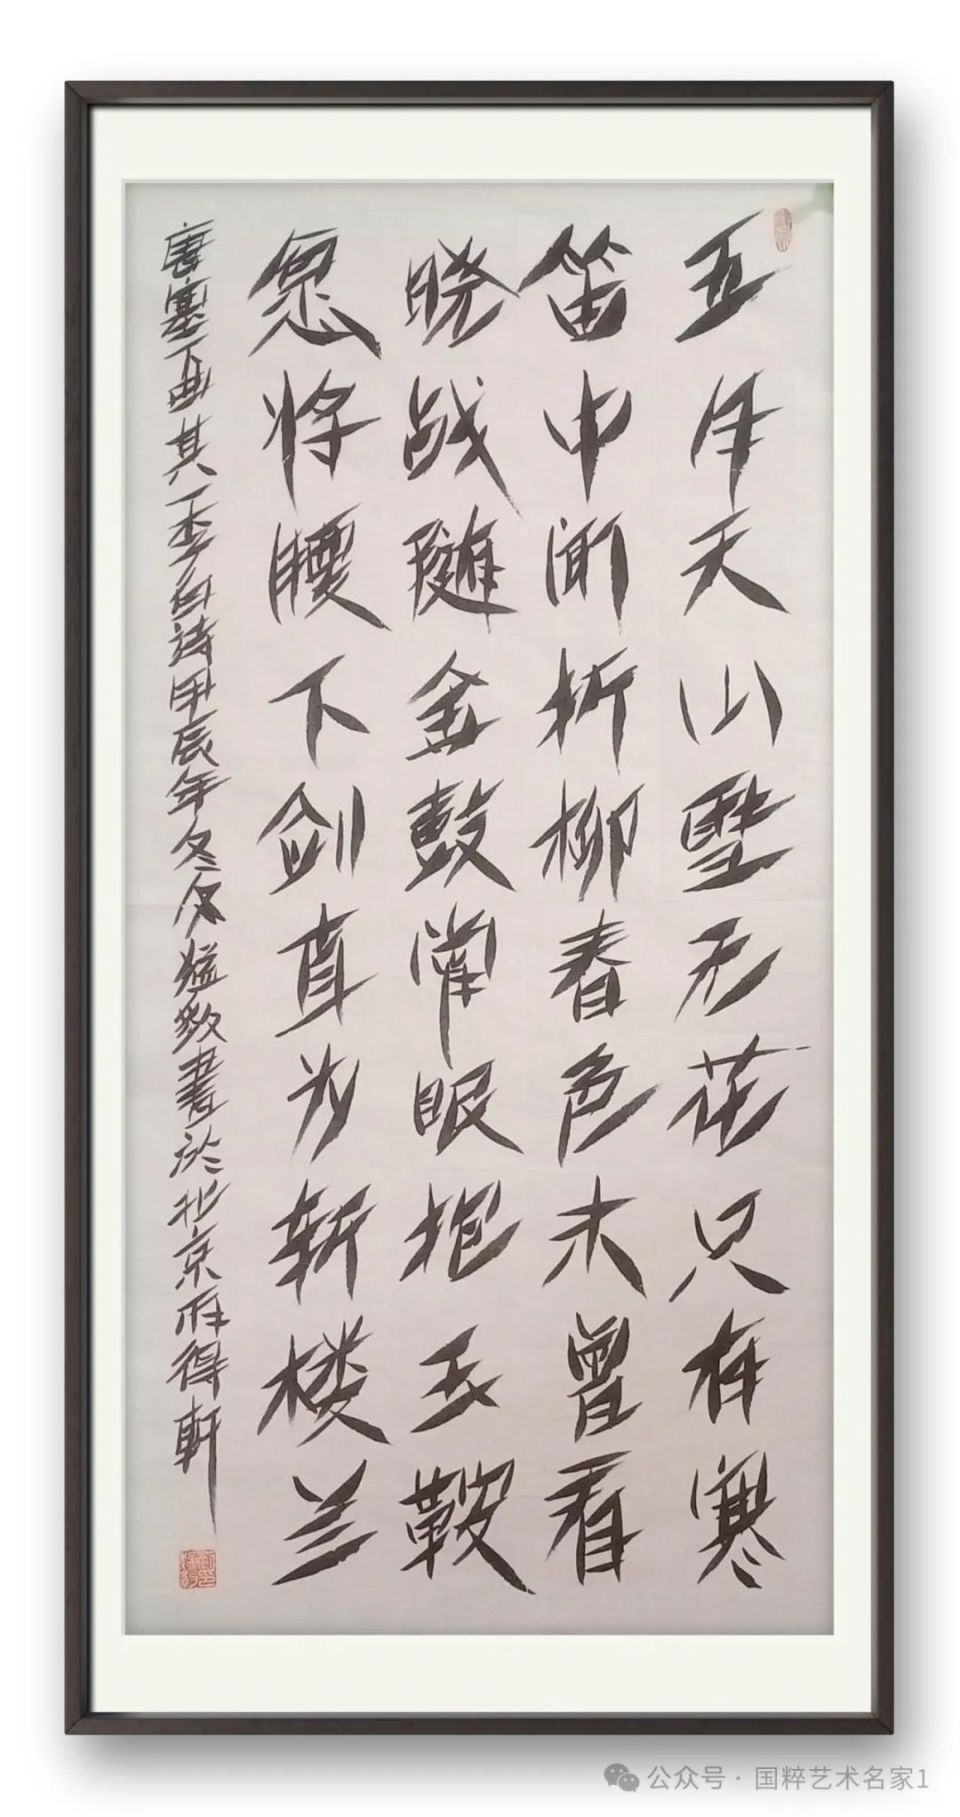 五月天山雪无花只有寒
笛中闻折柳春色未曾看
晓战随金鼓常眠抱玉鞍
愿将腰下剑直为斩楼兰
唐塞下曲其一李白詩甲辰年冬猛敬書於北京得軒
公众号·国粹艺术名家1